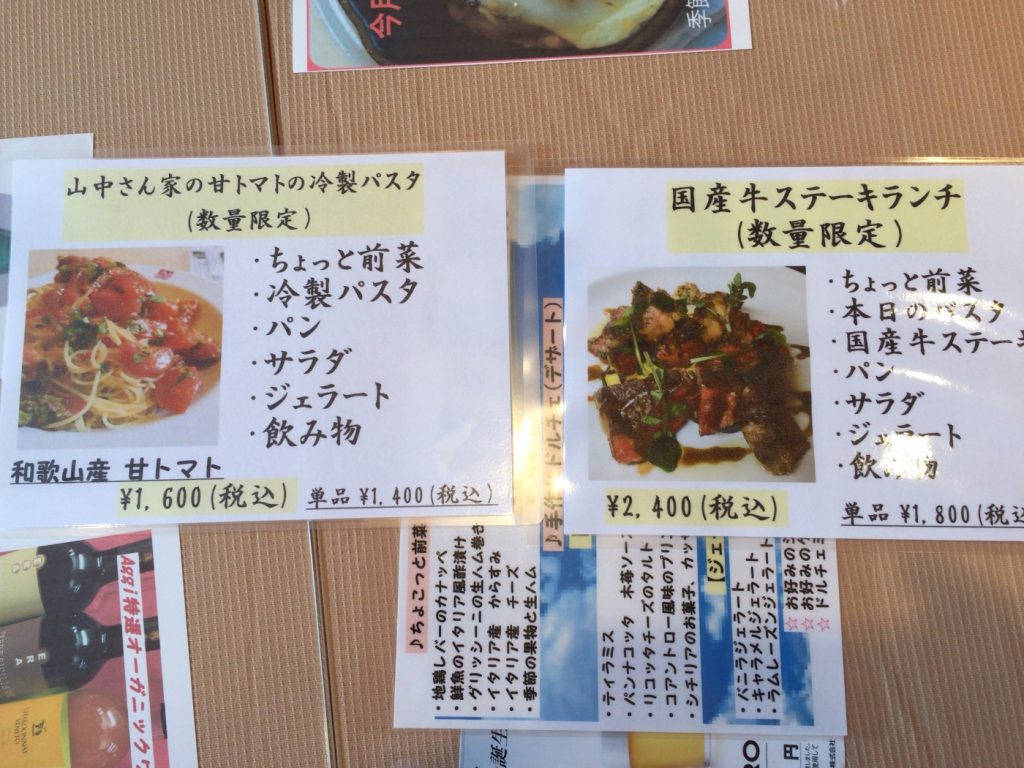 今月
季節
山中さん家の甘トマトの冷製パスタ
(数量限定)
・ちょっと前菜
・冷製パスタ
・パン
・サラダ
・ジェラート
・飲み物
和歌山産 甘トマト
¥1,600(税込)
単品¥1,400(税込)
国産牛ステーキランチ
(数量限定)
・ちょっと前菜
・本日のパスタ
・国産牛ステーキ
・パン
・サラダ
・ジェラート
・飲み物
¥2,400(税込)
単品¥1,800(税込
♪ちょこっと前菜
・地鶏レバーのカナッペ
・鮮魚のイタリア風酢漬け
・グリッシーニの生ハム巻き
・イタリア産 からすみ
・イタリア産 チーズ
・季節の果物と生ハム
♪手作 ドルチェ(デザート)
・ティラミス
・パンナコッタ 木苺ソー
・リコッタチーズのタルト
・コアントロー風味のプリ
・シチリアのお菓子、カッサ
【ジェ
・バニラジェラート
・キャラメルジェラート
・ラムレーズンジェラート
☆お好みの
☆お好みの
☆ドルチェ
Aggi特選オーガニックワ
ERA
CHARDONNAY
VENETO
誕生
RO
円
株式会社